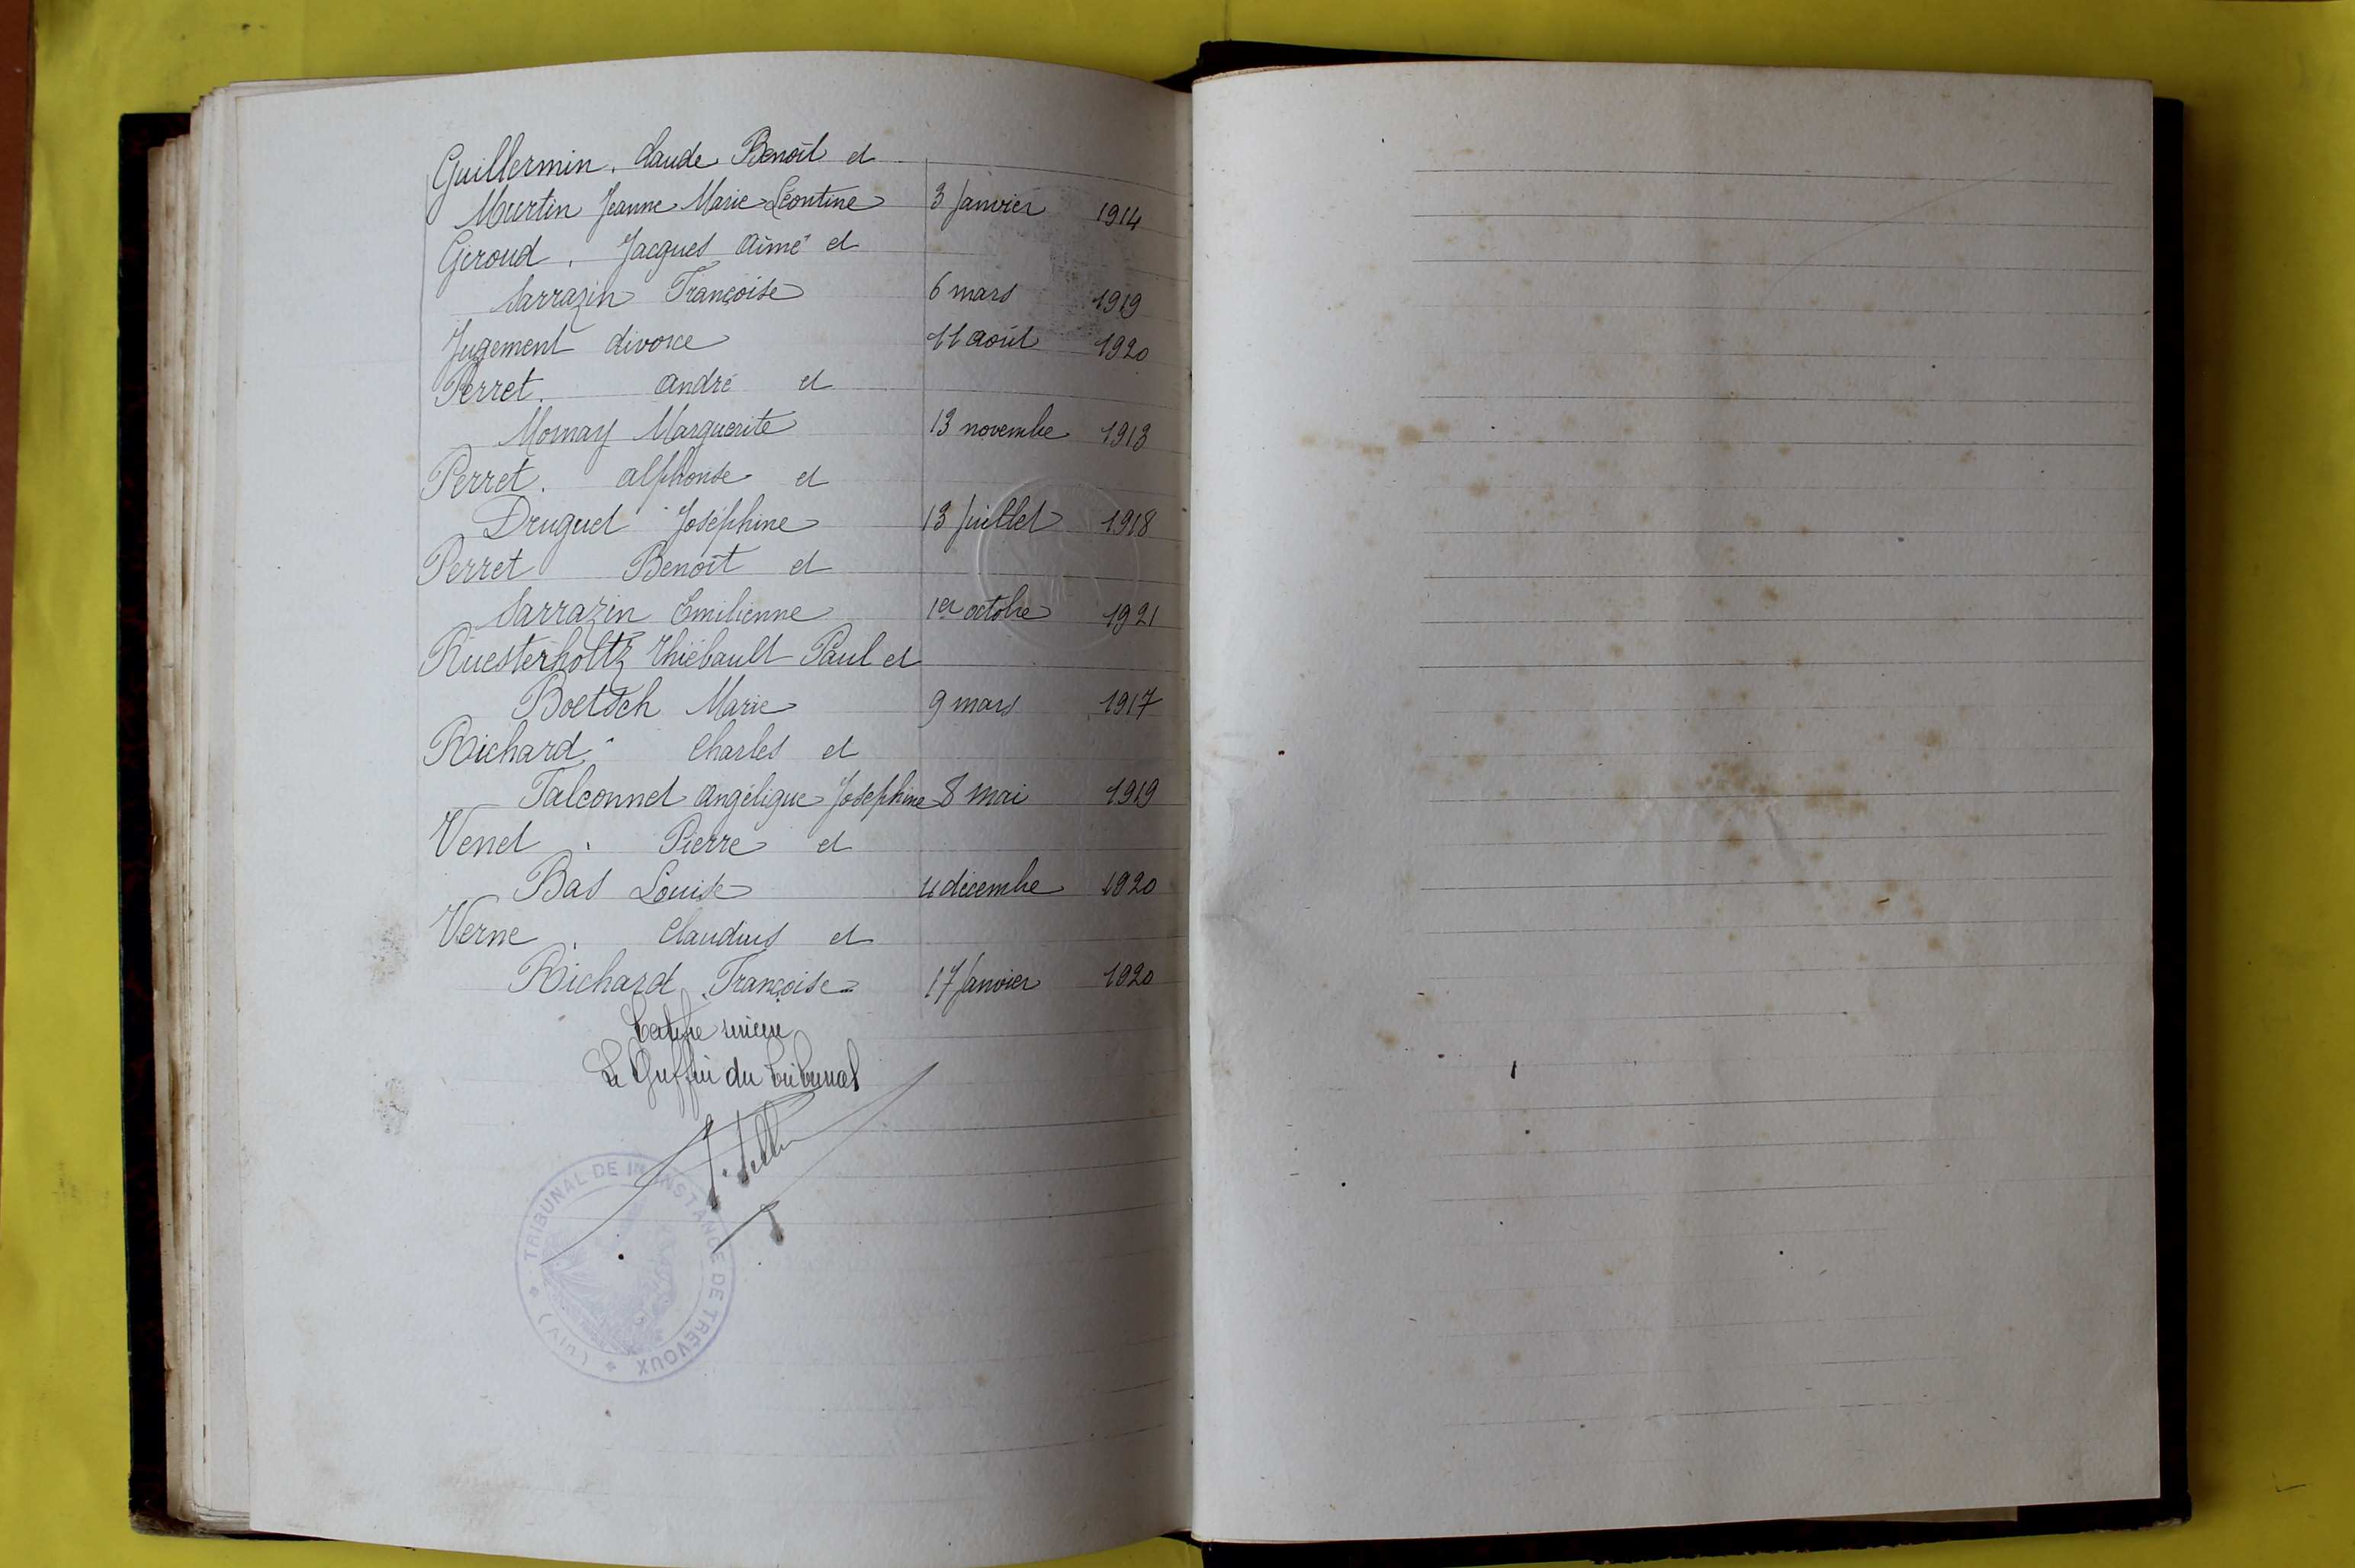 Guillermin. Claude Benoît et
Murtin Jeanne Marie Léontine 3 Janvier 1914
Geroud. Jacques Aimé et
Sarrazin Françoise 6 mars 1919
Jugement divorce 11 août 1920
Perret. André et
Mornay Marguerite 13 novembre 1913
Perret. Alphonse et
Druguet Joséphine 13 Juillet 1918
Perret Benoît et
Sarrazin Emilienne 1er octobre 1921
Ruesterholtz Thiébault Paul et
Boetsch Marie 9 mars 1917
Richard Charles et
Falconnet Angélique Joséphine 8 mai 1919
Venet. Pierre et
Bas Louise 4 décembre 1920
Verne. Claudius et
Richard Françoise 17 Janvier 1920
Le Greffier du Tribunal
TRIBUNAL DE 1re INSTANCE DE TRÉVOUX * (AIN) *